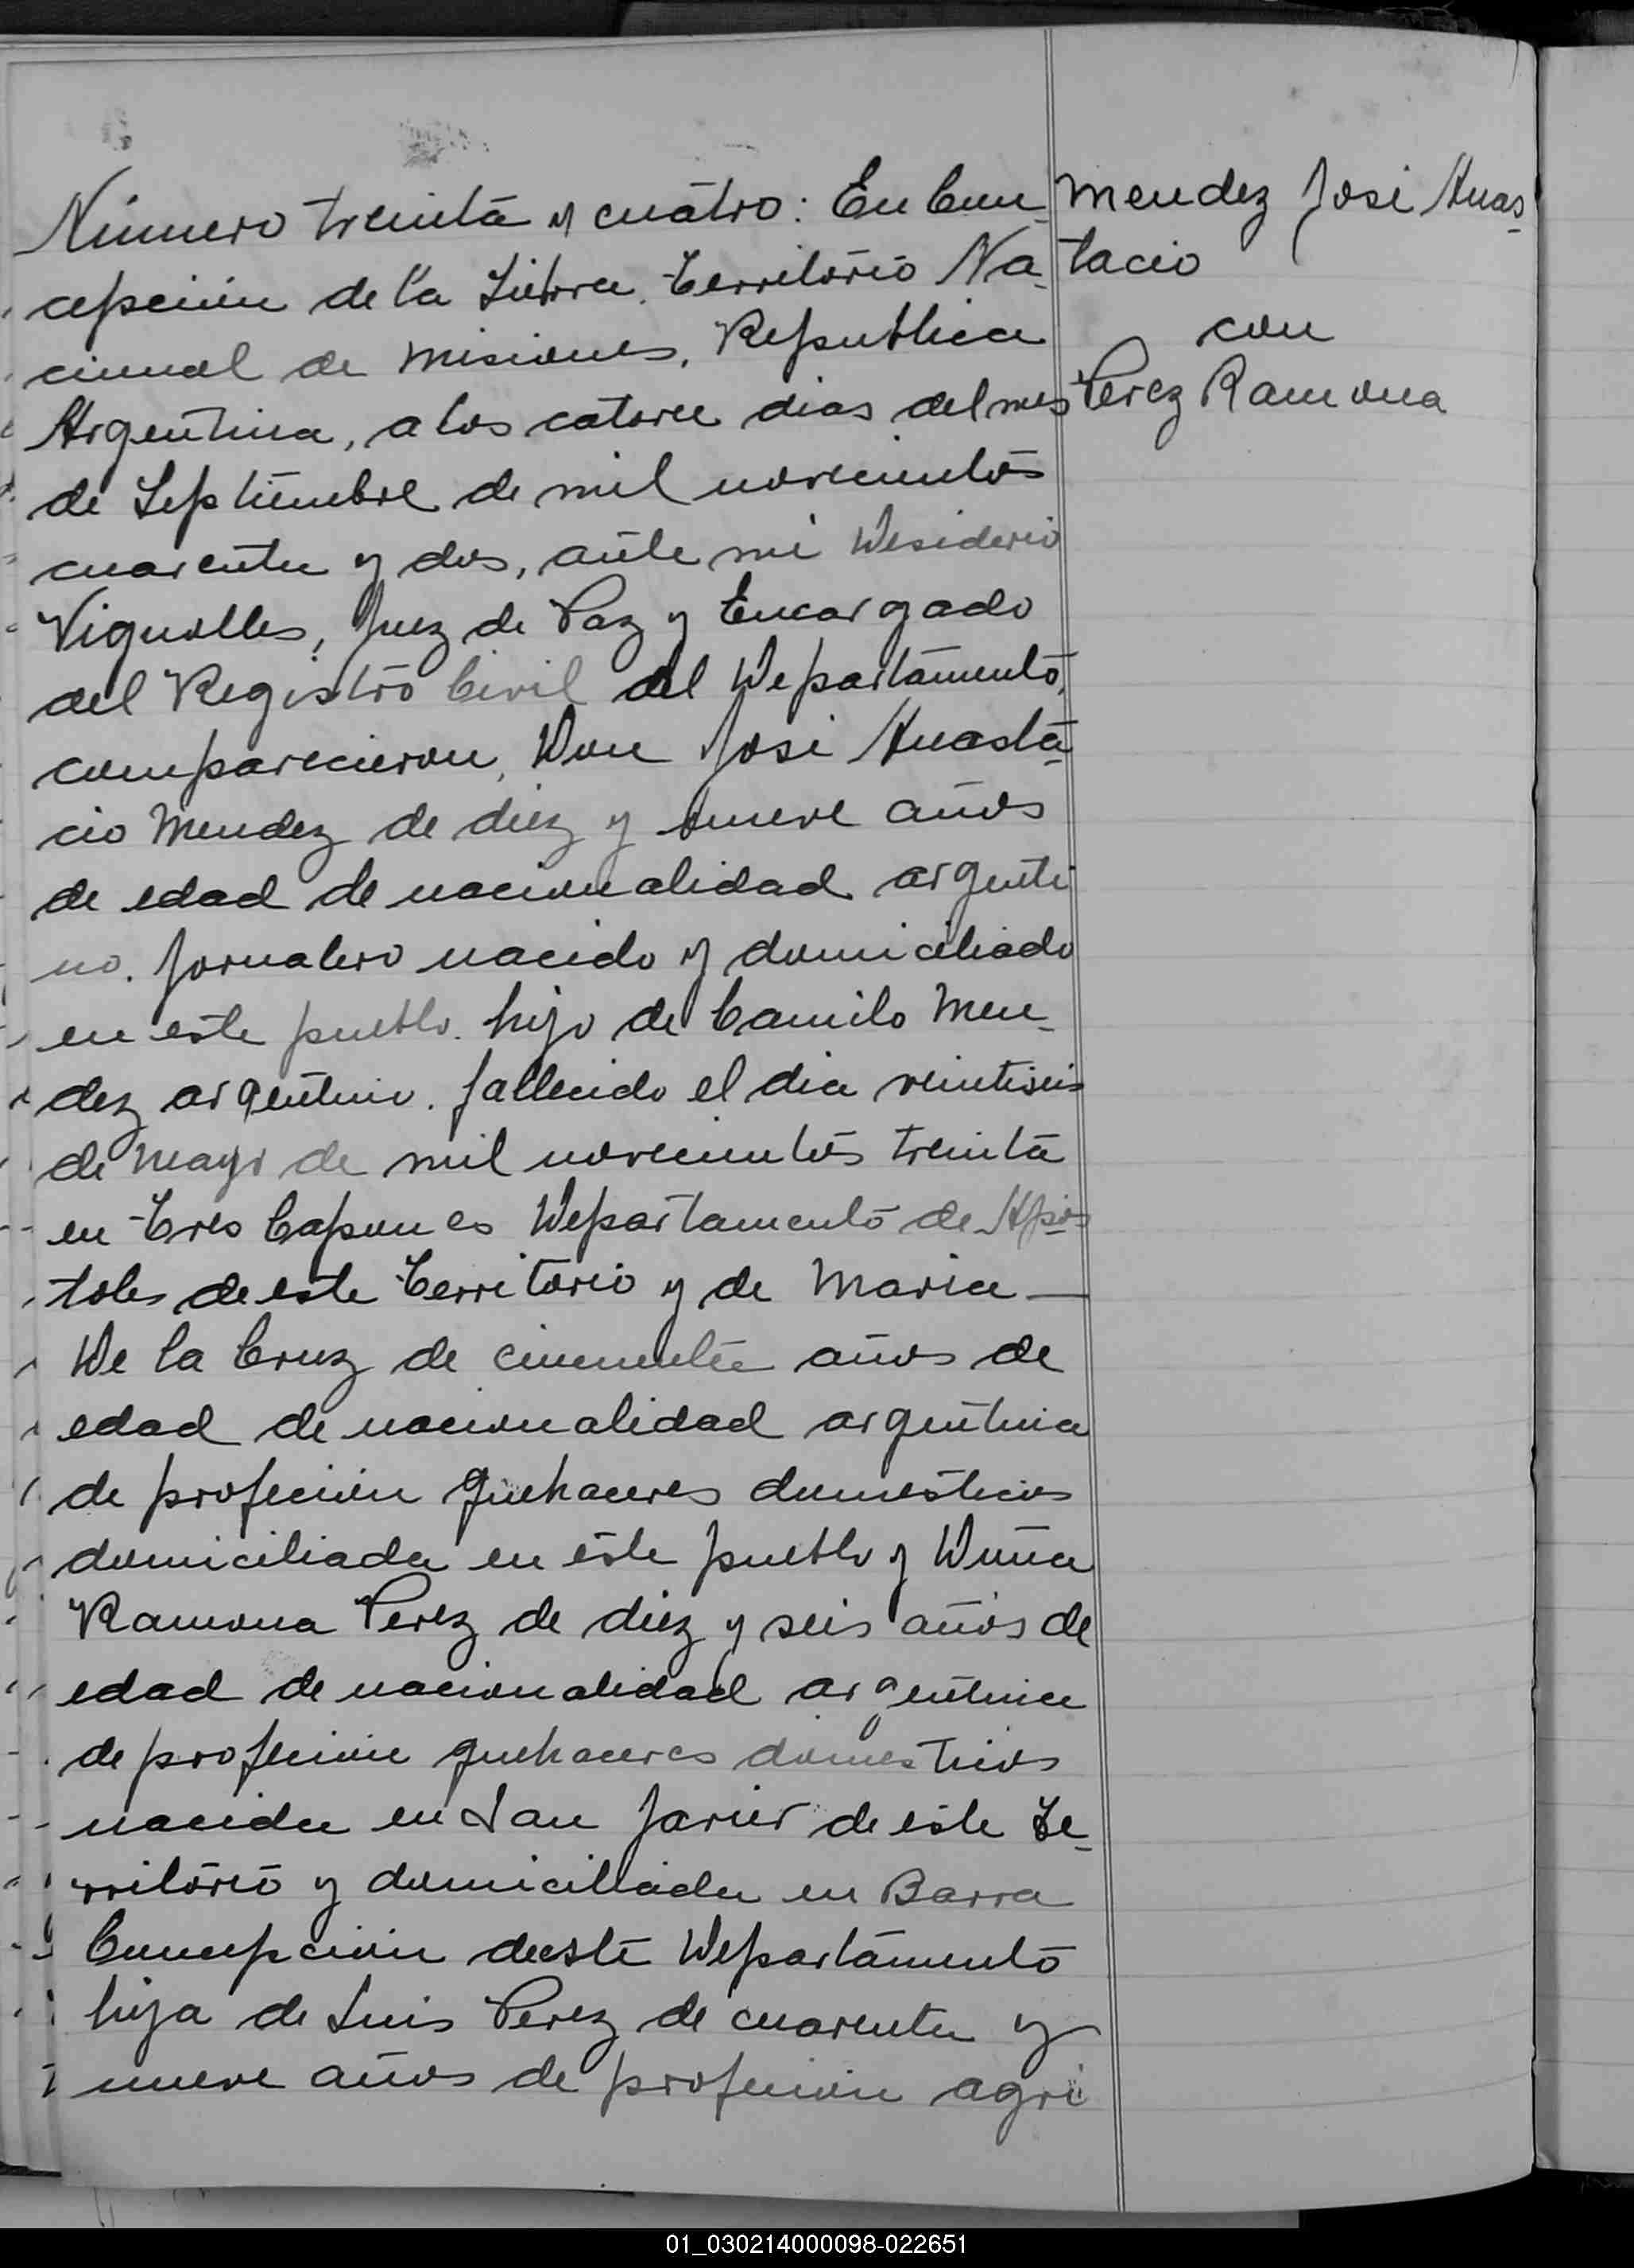 Número treinta y cuatro: En Con-
cepción de la Sierra. Territorio Na-
cional de Misiones, Republica
Argentina, a los catorce dias del mes
de Septiembre de mil novecientos
cuarenta y dos, ante mi Desiderio
Vignolles, Juez de Paz y Encargado
del Registro Civil del Departamento,
comparecieron, Don José Anasta-
cio Mendez de diez y nueve años
de edad de nacionalidad argenti
no. Jornalero nacido y domiciliado
en este pueblo. hijo de Camilo Men-
dez argentino. fallecido el dia veintiseis
de Mayo de mil novecientos treinta
en Tres Capones Departamento de Apos-
toles de este Territorio y de Maria —
De la Cruz de cincuenta años de
edad de nacionalidad argentina
de profecion quehaceres domesticos
domiciliada en este pueblo y Doña
Ramona Perez de diez y seis años de
edad de nacionalidad argentina
de profecion quehaceres domesticos
nacida en San Javier de este Te-
rritorio y domiciliada en Barra
Concepcion de este Departamento
hija de Luis Perez de cuarenta y
nueve años de profecion agri
Mendez José Anas-
tacio
con
Perez Ramona
01_030214000098-022651